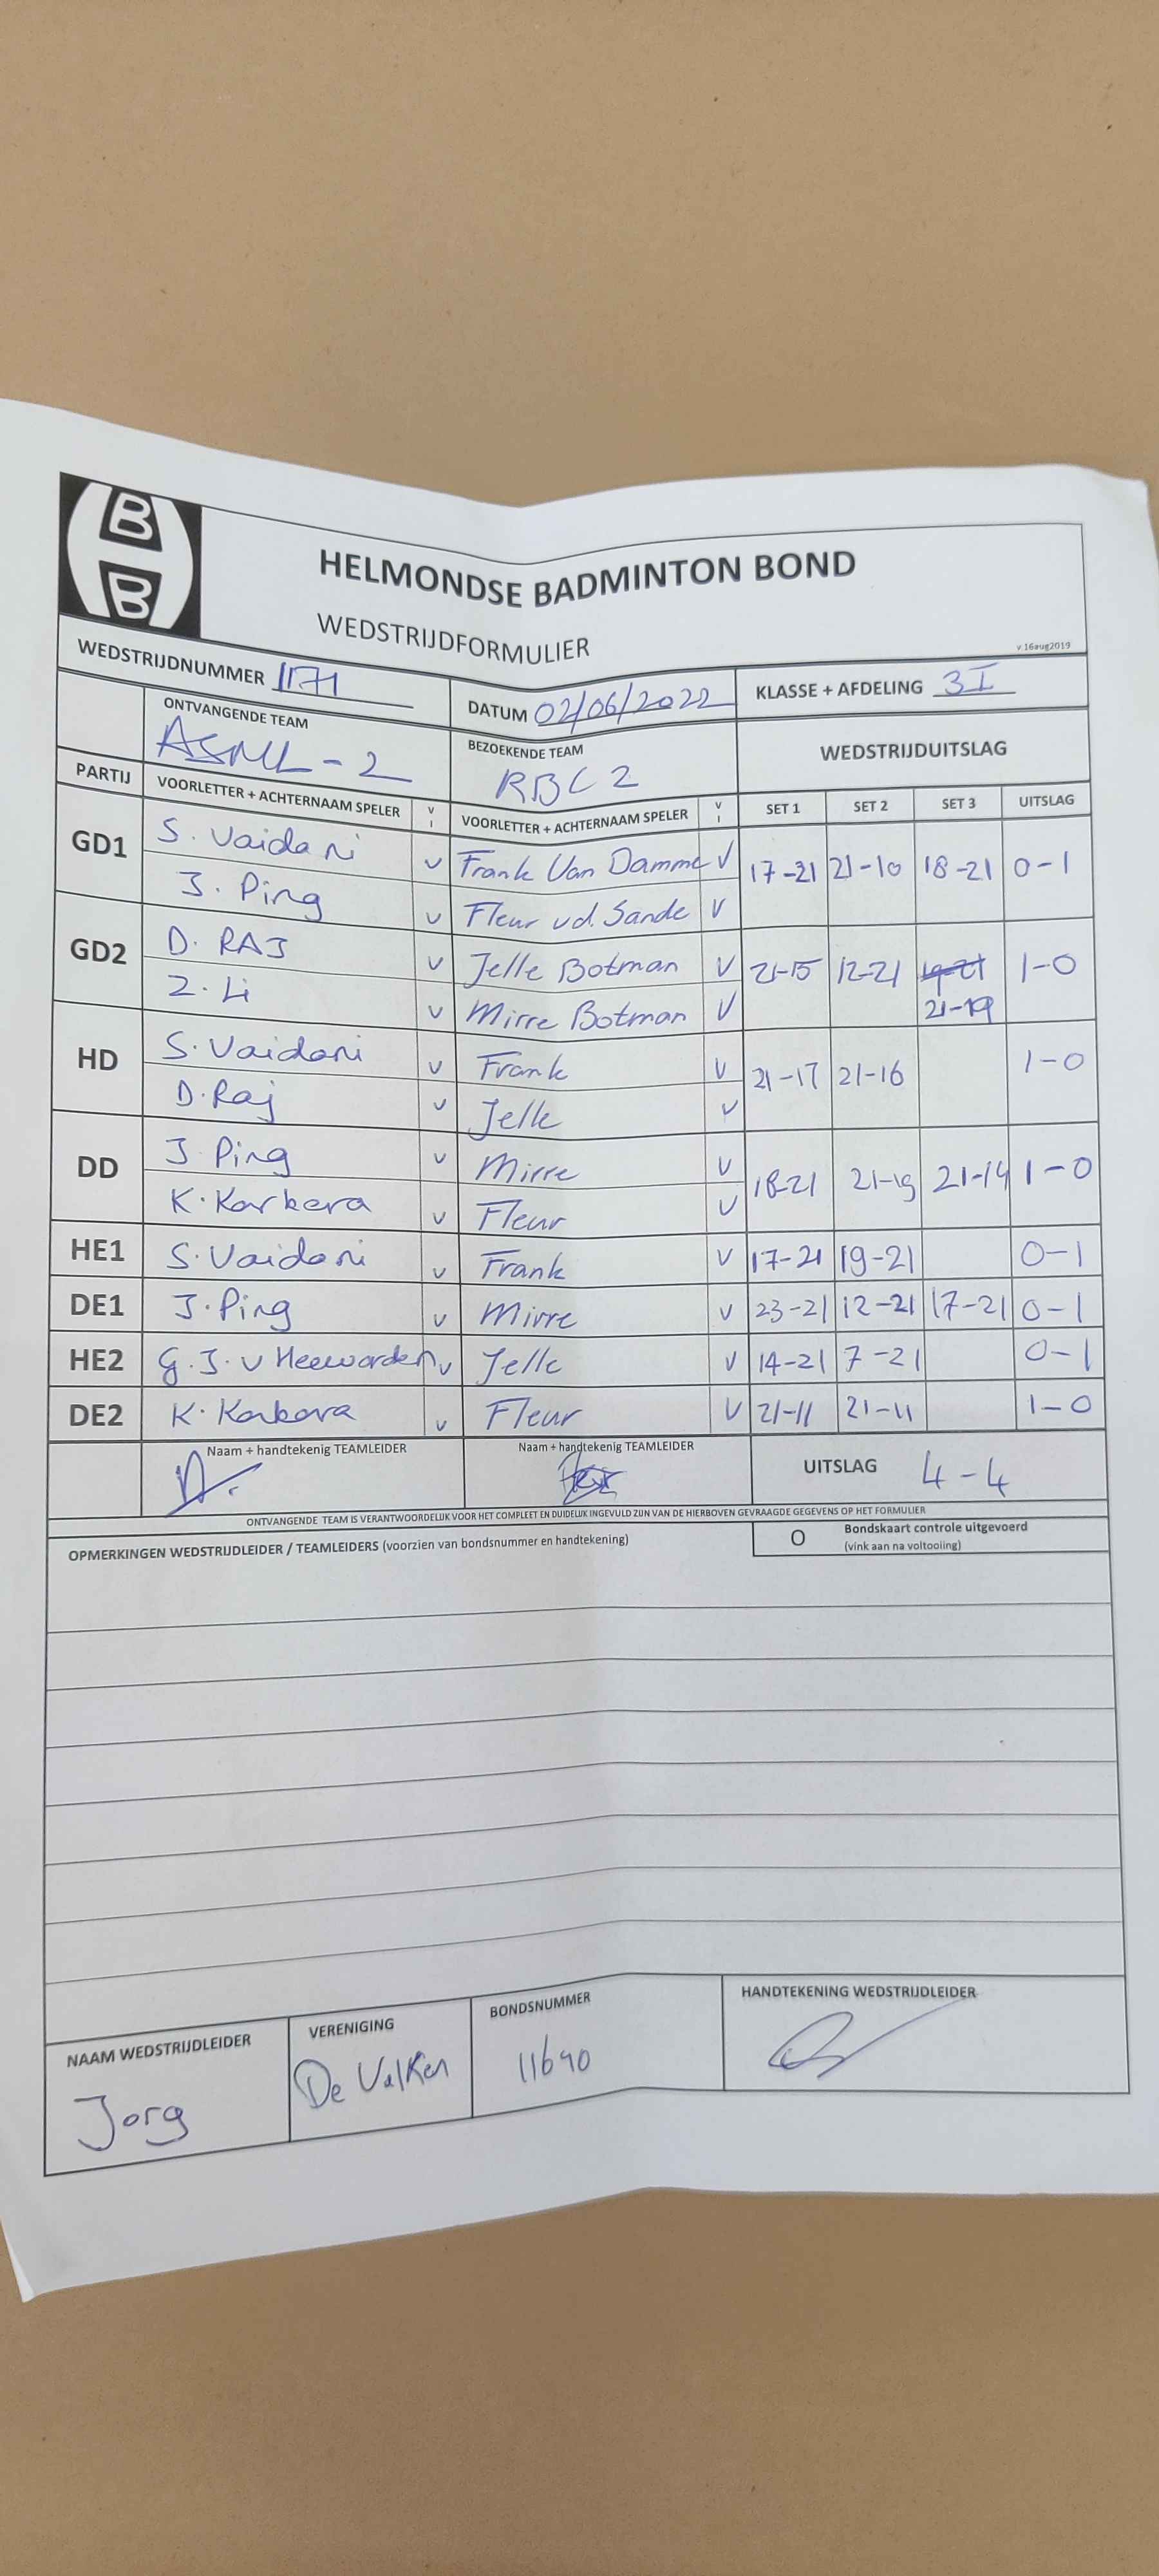 B
B
HELMONDSE BADMINTON BOND
WEDSTRIJDFORMULIER
v.16aug2019
WEDSTRIJDNUMMER 1171
DATUM 02/06/2022
KLASSE + AFDELING 3I
ONTVANGENDE TEAM
ASML-2
BEZOEKENDE TEAM
RBC 2
WEDSTRIJDUITSLAG
PARTIJ VOORLETTER + ACHTERNAAM SPELER V I VOORLETTER + ACHTERNAAM SPELER V I SET 1 SET 2 SET 3 UITSLAG
GD1 S. Vaidani v Frank Van Damme v 17-21 21-10 18-21 0-1
J. Ping v Fleur vd. Sande v
GD2 D. RAJ v Jelle Botman v 21-15 12-21 19-21 1-0
Z. Li v Mirre Botman v 21-19
HD S. Vaidani v Frank v 21-17 21-16 1-0
D. Raj v Jelle v
DD J. Ping v Mirre v 18-21 21-19 21-14 1-0
K. Karkera v Fleur v
HE1 S. Vaidani v Frank v 17-21 19-21 0-1
DE1 J. Ping v Mirre v 23-21 12-21 17-21 0-1
HE2 G. J. v Heeworden v Jelle v 14-21 7-21 0-1
DE2 K. Karkera v Fleur v 21-11 21-11 1-0
Naam + handtekenig TEAMLEIDER
Naam + handtekenig TEAMLEIDER
UITSLAG 4-4
ONTVANGENDE TEAM IS VERANTWOORDELIJK VOOR HET COMPLEET EN DUIDELIJK INGEVULD ZIJN VAN DE HIERBOVEN GEVRAAGDE GEGEVENS OP HET FORMULIER
OPMERKINGEN WEDSTRIJDLEIDER / TEAMLEIDERS (voorzien van bondsnummer en handtekening)
O Bondskaart controle uitgevoerd
(vink aan na voltooiing)
NAAM WEDSTRIJDLEIDER
Jorg
VERENIGING
De Valken
BONDSNUMMER
11690
HANDTEKENING WEDSTRIJDLEIDER